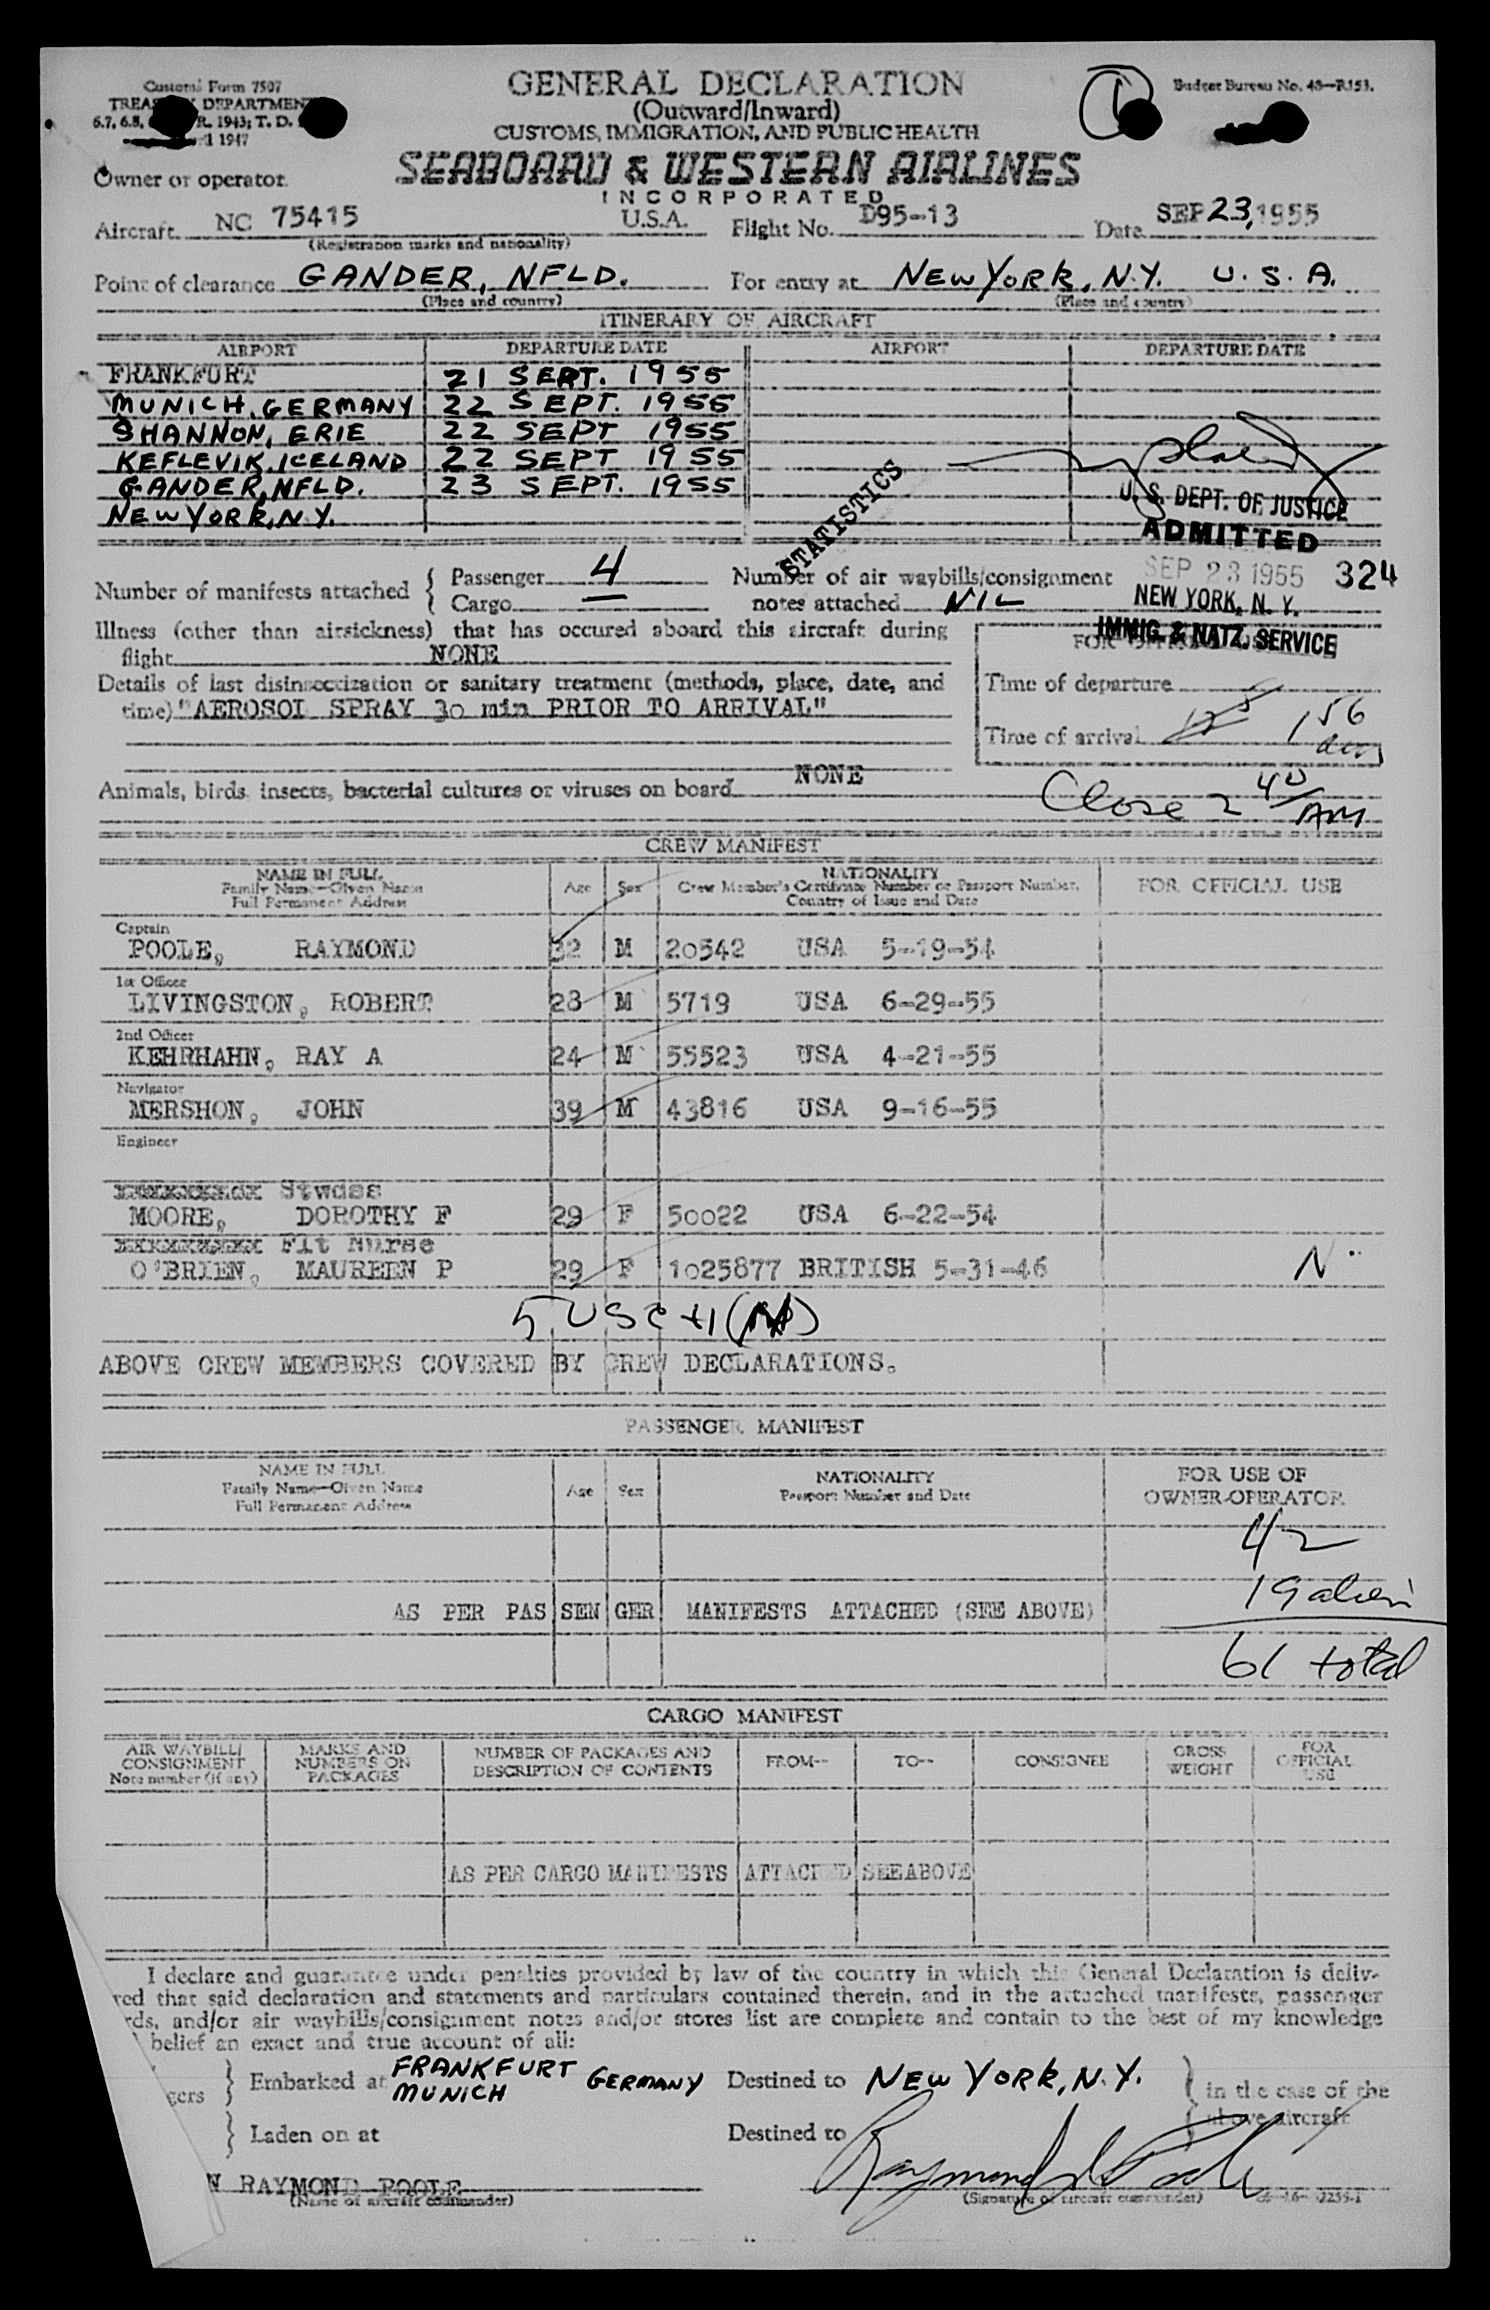 Customs Form 7507
GENERAL DECLARATION
Budget Bureau No. 48—R353.
TREASURY DEPARTMENT
(Outward/Inward)
6.7, 6.8, R. 1943; T. D.
CUSTOMS, IMMIGRATION, AND PUBLIC HEALTH
1947
SEABOARD & WESTERN AIRLINES
Owner or operator
INCORPORATED
Aircraft NC 75415 U.S.A. Flight No. D95-13 Date SEP 23, 1955
(Registration marks and nationality)
Point of clearance GANDER, NFLD. For entry at NEW YORK, N.Y. U.S.A.
(Place and country) (Place and country)
ITINERARY OF AIRCRAFT
AIRPORT DEPARTURE DATE AIRPORT DEPARTURE DATE
FRANKFURT 21 SEPT. 1955
MUNICH, GERMANY 22 SEPT. 1955
SHANNON, ERIE 22 SEPT 1955
KEFLEVIK, ICELAND 22 SEPT 1955
GANDER, NFLD. 23 SEPT. 1955
NEW YORK, N.Y.
STATISTICS
U. S. DEPT. OF JUSTICE
ADMITTED
SEP 23 1955 324
NEW YORK, N. Y.
IMMIG. & NATZ. SERVICE
Number of manifests attached { Passenger 4 Number of air waybills/consignment
Cargo — notes attached NIL
Illness (other than airsickness) that has occured aboard this aircraft during
flight NONE
FOR OFFICIAL USE
Details of last disinsectization or sanitary treatment (methods, place, date, and
time) "AEROSOL SPRAY 30 min PRIOR TO ARRIVAL"
Time of departure
Time of arrival 1 56
Animals, birds, insects, bacterial cultures or viruses on board NONE
Close 2 40 AM
CREW MANIFEST
NAME IN FULL
Family Name—Given Name
Full Permanent Address
Age Sex
NATIONALITY
Crew Member's Certificate Number or Passport Number,
Country of Issue and Date
FOR OFFICIAL USE
Captain
POOLE, RAYMOND 32 M 20542 USA 5-19-54
1st Officer
LIVINGSTON, ROBERT 28 M 5719 USA 6-29-55
2nd Officer
KEHRHAHN, RAY A 24 M 55523 USA 4-21-55
Navigator
MERSHON, JOHN 39 M 43816 USA 9-16-55
Engineer
Stwdss
MOORE, DOROTHY F 29 F 50022 USA 6-22-54
Flt Nurse
O'BRIEN, MAUREEN P 29 F 1025877 BRITISH 5-31-46 N
5 USC +1
ABOVE CREW MEMBERS COVERED BY CREW DECLARATIONS.
PASSENGER MANIFEST
NAME IN FULL
Family Name—Given Name
Full Permanent Address
Age Sex
NATIONALITY
Passport Number and Date
FOR USE OF
OWNER-OPERATOR
42
19 alien
AS PER PASSENGER MANIFESTS ATTACHED (SEE ABOVE)
61 total
CARGO MANIFEST
AIR WAYBILL/
CONSIGNMENT
Note number (if any)
MARKS AND
NUMBERS ON
PACKAGES
NUMBER OF PACKAGES AND
DESCRIPTION OF CONTENTS
FROM— TO— CONSIGNEE
GROSS
WEIGHT
FOR
OFFICIAL
USE
AS PER CARGO MANIFESTS ATTACHED SEE ABOVE
I declare and guarantee under penalties provided by law of the country in which this General Declaration is deliv-
red that said declaration and statements and particulars contained therein, and in the attached manifests, passenger
rds, and/or air waybills/consignment notes and/or stores list are complete and contain to the best of my knowledge
belief an exact and true account of all:
gers } Embarked at FRANKFURT MUNICH GERMANY Destined to NEW YORK, N.Y. } in the case of the
above aircraft
} Laden on at Destined to
N RAYMOND POOLE Raymond Poole
(Name of aircraft commander) (Signature of aircraft commander)